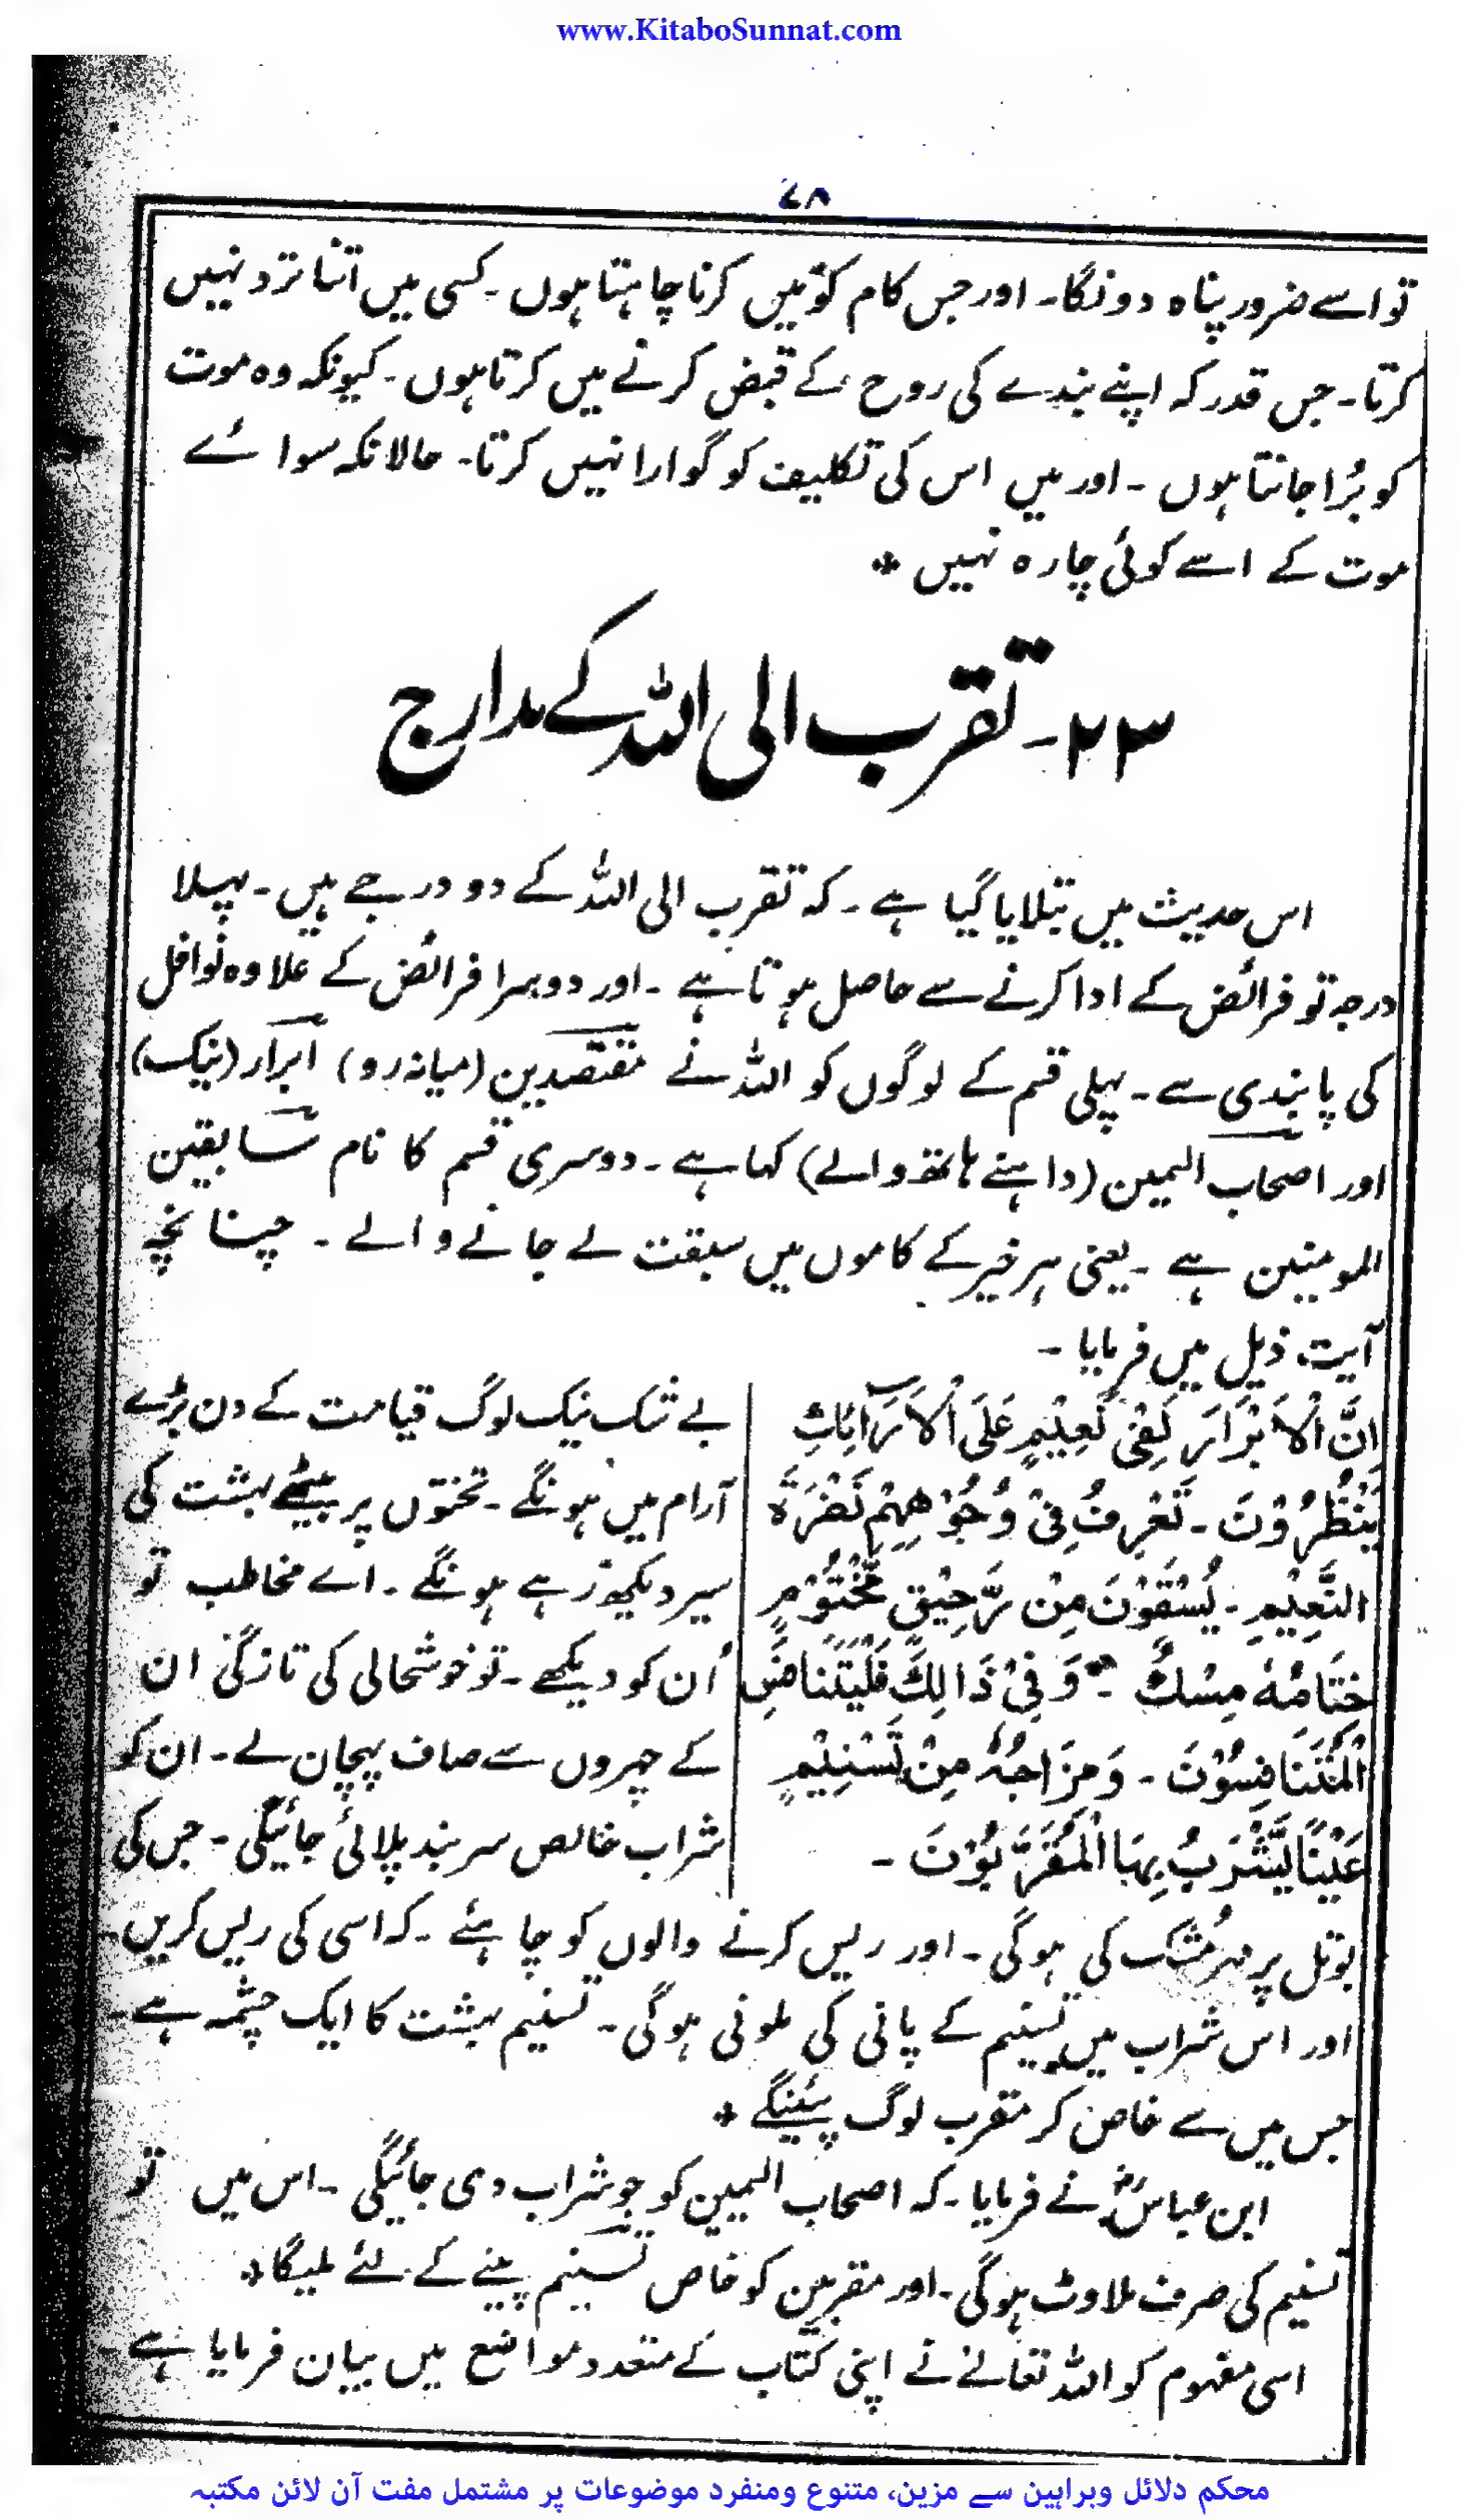 www.KitaboSunnat.com
۷۸
تو اسے ضرور پناہ دونگا۔ اور جس کام کو میں کرنا چاہتا ہوں۔ کسی میں اتنا تردد نہیں
کرتا۔ جس قدر کہ اپنے بندے کی روح کے قبض کرنے میں کرتا ہوں۔ کیونکہ وہ موت
کو بُرا جانتا ہوں۔ اور میں اس کی تکلیف کو گوارا نہیں کرتا۔ حالانکہ سوائے
موت کے اسے کوئی چارہ نہیں *
۲۳۔ تقرب الی اللہ کے مدارج
اس حدیث میں بتلایا گیا ہے۔ کہ تقرب الی اللہ کے دو درجے ہیں۔ پہلا
درجہ تو فرائض کے ادا کرنے سے حاصل ہوتا ہے۔ اور دوسرا فرائض کے علاوہ نوافل
کی پابندی سے۔ پہلی قسم کے لوگوں کو اللہ نے مقتصدین (میانہ رو) ابرار (نیک)
اور اصحاب الیمین (داہنے ہاتھ والے) کہا ہے۔ دوسری قسم کا نام سابقین
المومنین ہے۔ یعنی ہر خیر کے کاموں میں سبقت لے جانے والے۔ چنانچہ
آیت ذیل میں فرمایا۔
اِنَّ الْاَبْرَارَ لَفِیْ نَعِیْمٍ عَلَی الْاَرَآئِكِ
یَنْظُرُوْنَ۔ تَعْرِفُ فِیْ وُجُوْهِهِمْ نَضْرَةَ
النَّعِیْمِ۔ یُسْقَوْنَ مِنْ رَّحِیْقٍ مَّخْتُوْمٍ
خِتَامُهٗ مِسْكٌ۔ وَ فِیْ ذَالِكَ فَلْیَتَنَافَسِ
الْمُتَنَافِسُوْنَ۔ وَمِزَاجُهٗ مِنْ تَسْنِیْمٍ
عَیْنًا یَّشْرَبُ بِهَا الْمُقَرَّبُوْنَ۔
بے شک نیک لوگ قیامت کے دن بڑے
آرام میں ہونگے۔ تختوں پر بیٹھے بہشت کی
سیر دیکھ رہے ہونگے۔ اے مخاطب تو
اُن کو دیکھے۔ تو خوشحالی کی تازگی ان
کے چہروں سے صاف پہچان لے۔ ان کو
شراب خالص سربند پلائی جائیگی۔ جس کی
بوتل پر مہر مُشک کی ہوگی۔ اور ریس کرنے والوں کو چاہئے۔ کہ اسی کی ریس کریں۔
اور اس شراب میں تسنیم کے پانی کی ملونی ہوگی۔ تسنیم بہشت کا ایک چشمہ ہے۔
جس میں سے خاص کر مقرب لوگ پئینگے *
ابن عباسؓ نے فرمایا۔ کہ اصحاب الیمین کو جو شراب دی جائیگی۔ اس میں تو
تسنیم کی صرف ملاوٹ ہوگی۔ اور مقربین کو خاص تسنیم پینے کے لئے ملیگا *
اسی مفہوم کو اللہ تعالےٰ نے اپنی کتاب کے متعدد مواضع میں بیان فرمایا ہے۔
محکم دلائل وبراہین سے مزین، متنوع ومنفرد موضوعات پر مشتمل مفت آن لائن مکتبہ